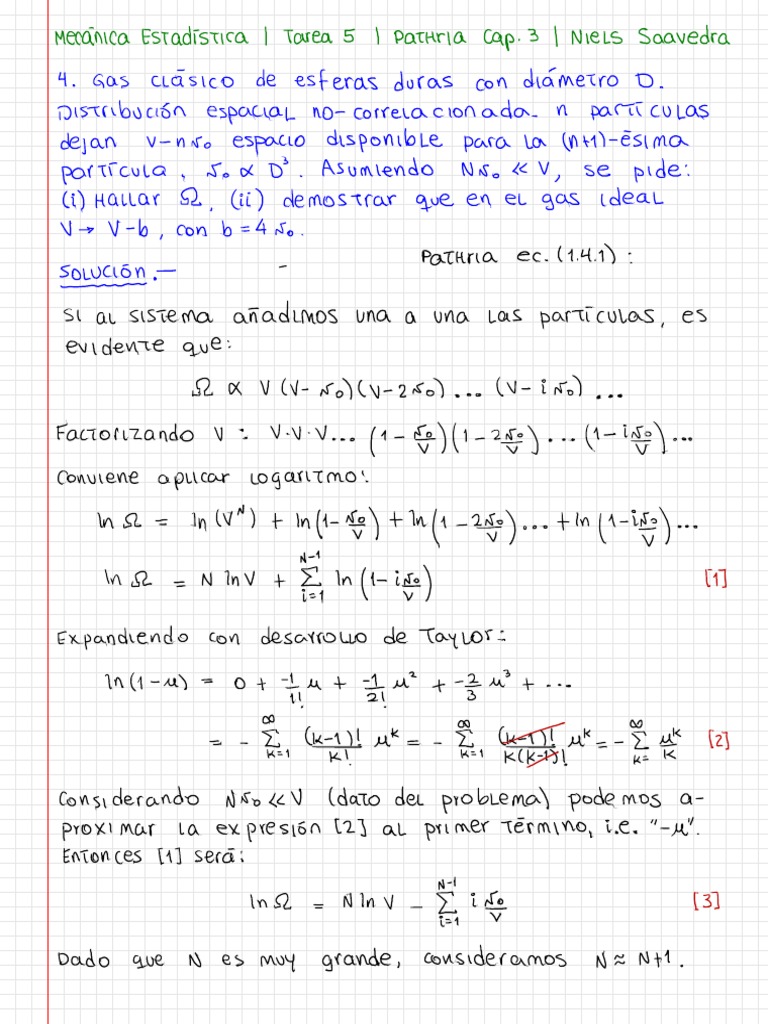 Mecánica Estadística | Tarea 5 | Pathria Cap. 3 | Niels Saavedra
4. Gas clásico de esferas duras con diámetro D.
Distribución espacial no-correlacionada. n partículas
dejan V-nv₀ espacio disponible para la (n+1)-ésima
partícula, v₀ ∝ D³. Asumiendo Nv₀ << V, se pide:
(i) Hallar Ω, (ii) demostrar que en el gas ideal
V → V-b, con b = 4v₀.
Pathria ec. (1.4.1) :
Solución.—
Si al sistema añadimos una a una las partículas, es
evidente que:
Ω ∝ V (V- v₀)(V-2v₀) ... (V- i v₀) ...
Factorizando V : V·V·V... (1 - v₀/V)(1 - 2v₀/V) ... (1 - iv₀/V) ...
Conviene aplicar logaritmo:
ln Ω = ln (V^N) + ln(1 - v₀/V) + ln(1 - 2v₀/V) ... + ln(1 - iv₀/V) ...
ln Ω = N ln V + Σ_{i=1}^{N-1} ln(1 - iv₀/V) [1]
Expandiendo con desarrollo de Taylor:
ln(1-u) = 0 + -1/1! u + -1/2! u² + -2/3 u³ + ...
= - Σ_{k=1}^{∞} (k-1)!/k! u^k = - Σ_{k=1}^{∞} (k-1)!/k(k-1)! u^k = - Σ_{k=}^{∞} u^k/k [2]
Considerando Nv₀ << V (dato del problema) podemos a-
proximar la expresión [2] al primer término, i.e. "-u".
Entonces [1] será:
ln Ω = N ln V - Σ_{i=1}^{N-1} i v₀/V [3]
Dado que N es muy grande, consideramos N ≈ N+1.